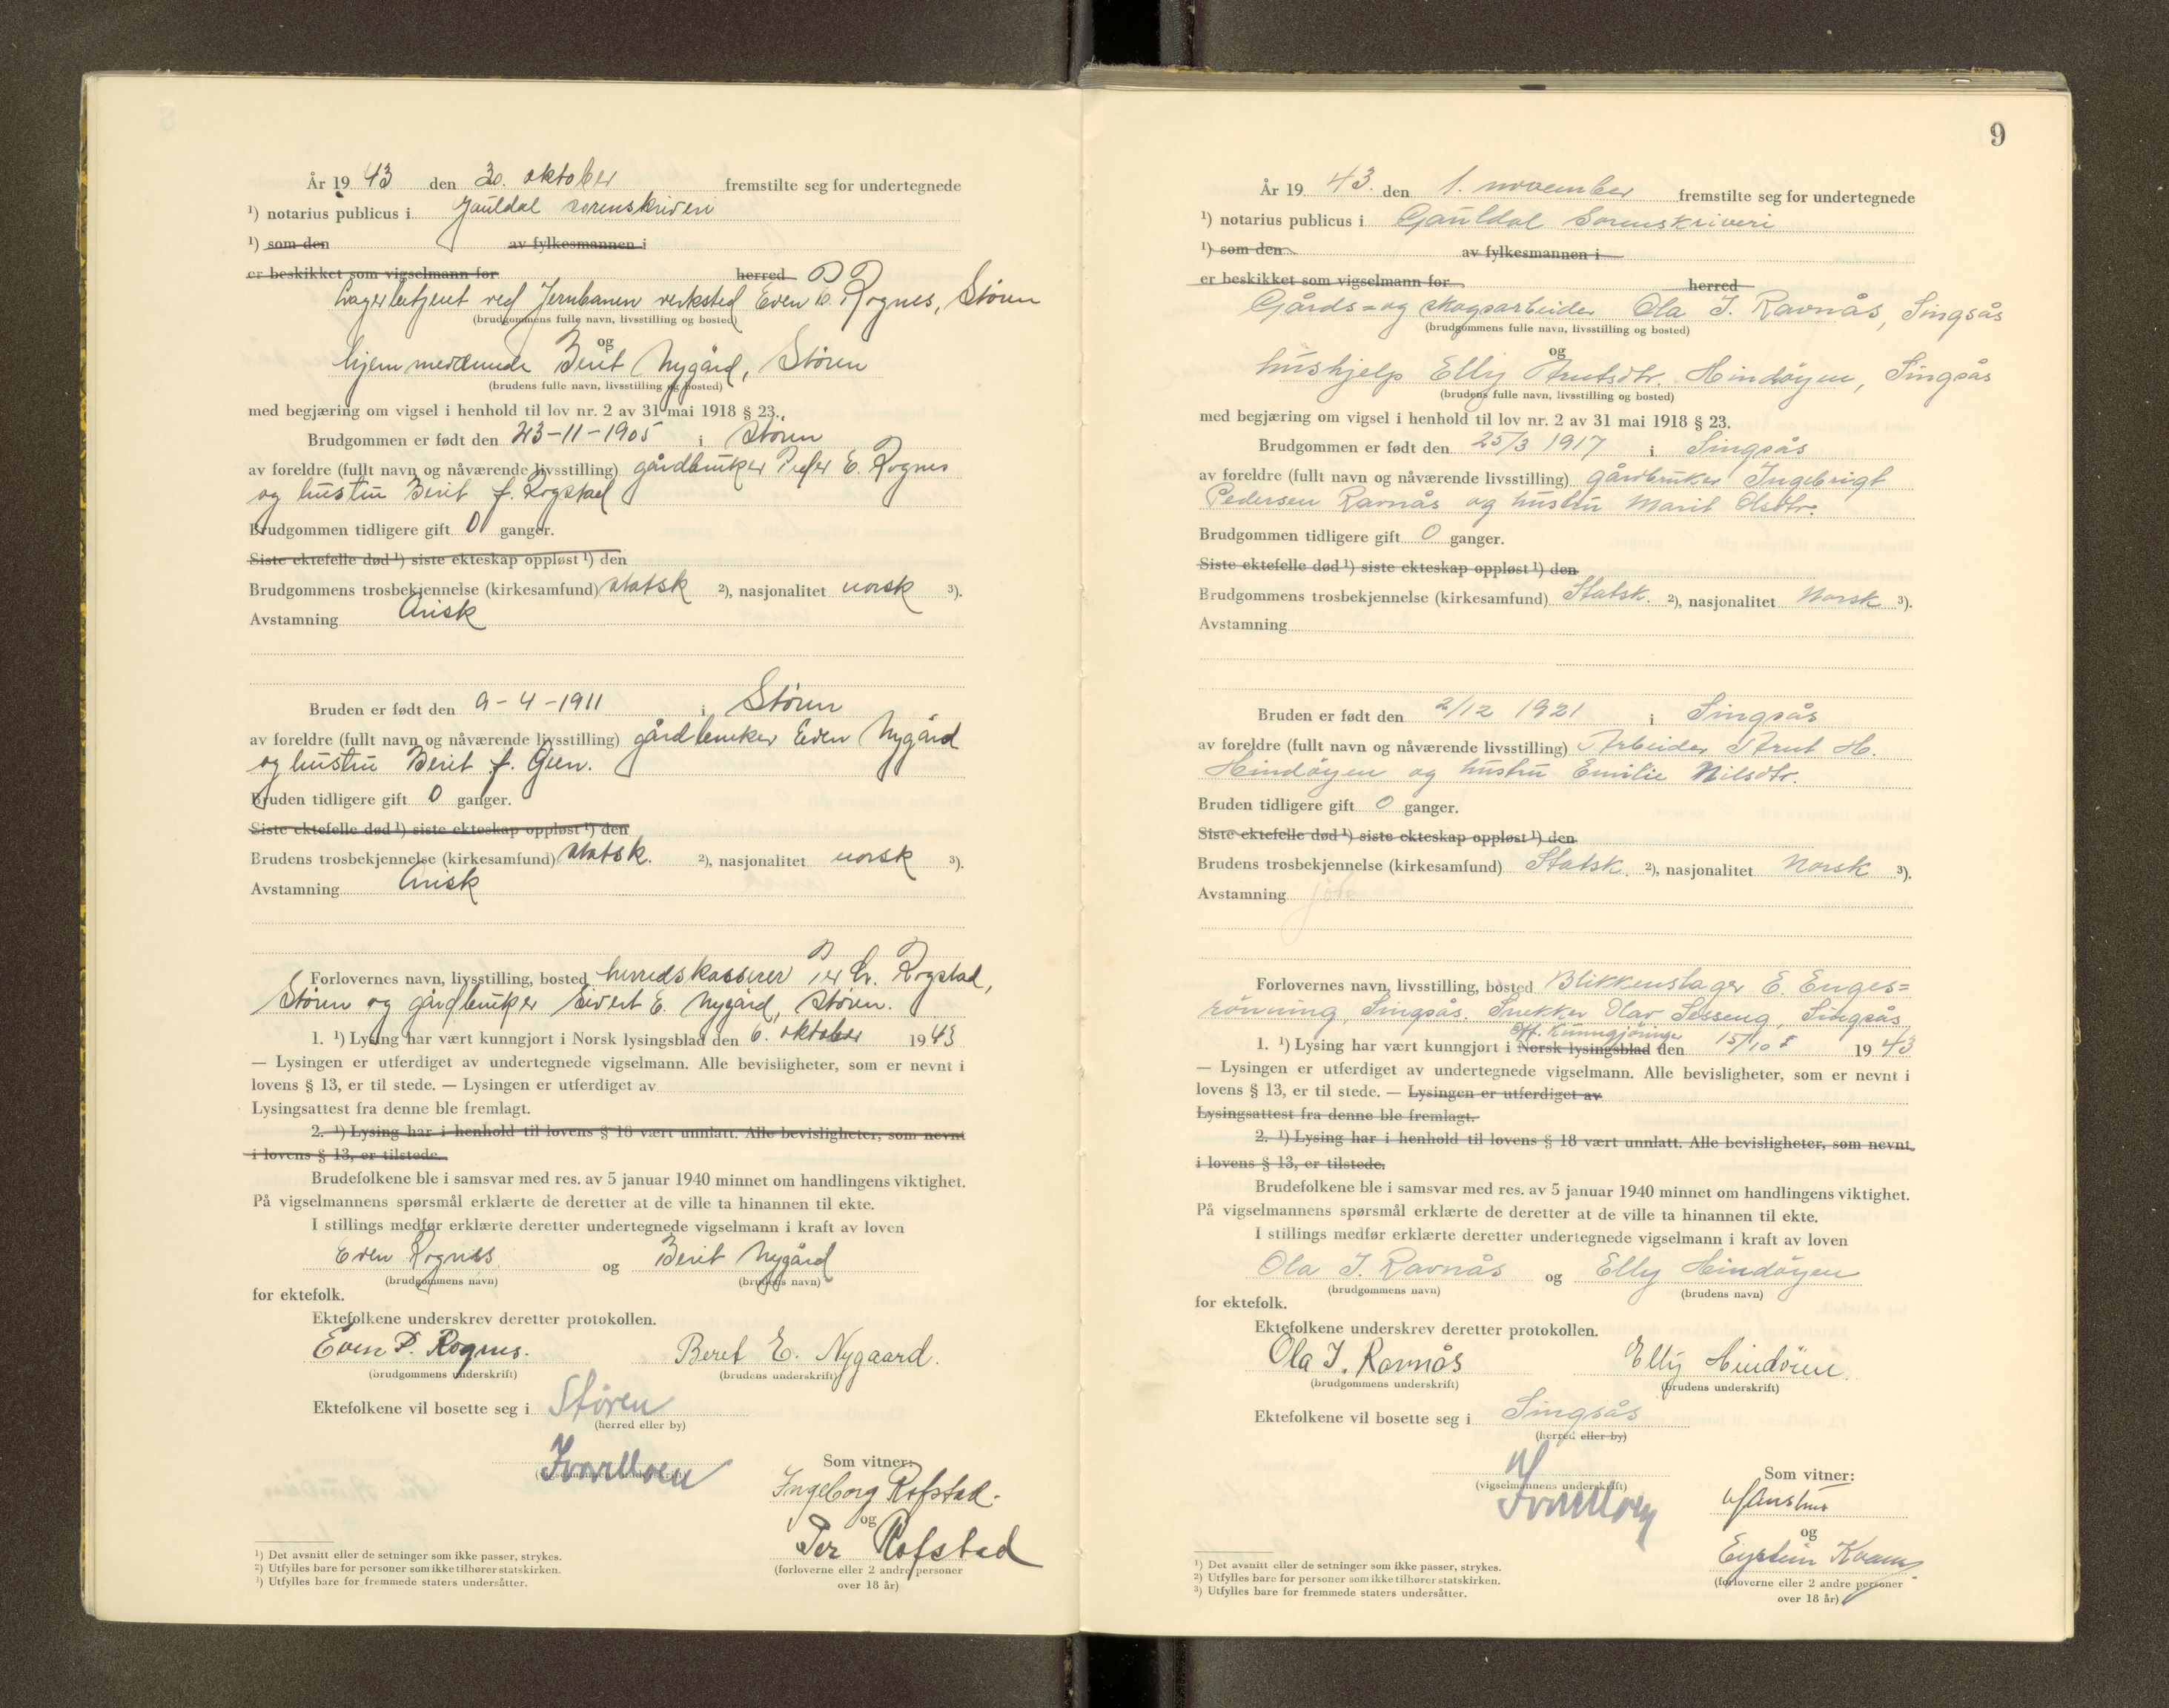 År 19 43 den 30. oktober fremstilte seg for undertegnede
¹) notarius publicus i Gauldal sorenskriveri
¹) som den av fylkesmannen i
er beskikket som vigselmann for herred
Lagerbetjent ved Jernbanen verksted Even P. Rognes, Støren
(brudgommens fulle navn, livsstilling og bosted)
og
hjemmeværende Berit Nygård, Støren
(brudens fulle navn, livsstilling og bosted)
med begjæring om vigsel i henhold til lov nr. 2 av 31 mai 1918 § 23.
Brudgommen er født den 23-11-1905 i Støren
av foreldre (fullt navn og nåværende livsstilling) gårdbruker Peder E. Rognes
og hustru Berit f. Rogstad
Brudgommen tidligere gift 0 ganger.
Siste ektefelle død ¹) siste ekteskap oppløst ¹) den
Brudgommens trosbekjennelse (kirkesamfund) statsk ²), nasjonalitet norsk ³).
Avstamning Arisk
Bruden er født den 9-4-1911 i Støren
av foreldre (fullt navn og nåværende livsstilling) gårdbruker Even Nygård
og hustru Berit f. Gien.
Bruden tidligere gift 0 ganger.
Siste ektefelle død ¹) siste ekteskap oppløst ¹) den
Brudens trosbekjennelse (kirkesamfund) statsk. ²), nasjonalitet norsk ³).
Avstamning Arisk
Forlovernes navn, livsstilling, bosted herredskasserer Per Rogstad,
Støren og gårdbruker Sivert E. Nygård, Støren.
1. ¹) Lysing har vært kunngjort i Norsk lysingsblad den 6. oktober 1943
— Lysingen er utferdiget av undertegnede vigselmann. Alle bevisligheter, som er nevnt i
lovens § 13, er til stede. — Lysingen er utferdiget av
Lysingsattest fra denne ble fremlagt.
2. ¹) Lysing har i henhold til lovens § 18 vært unnlatt. Alle bevisligheter, som nevnt
i lovens § 13, er tilstede.
Brudefolkene ble i samsvar med res. av 5 januar 1940 minnet om handlingens viktighet.
På vigselmannens spørsmål erklærte de deretter at de ville ta hinannen til ekte.
I stillings medfør erklærte deretter undertegnede vigselmann i kraft av loven
Even Rognes og Berit Nygård
(brudgommens navn) (brudens navn)
for ektefolk.
Ektefolkene underskrev deretter protokollen.
Even P. Rognes. Beret E. Nygaard.
(brudgommens underskrift) (brudens underskrift)
Ektefolkene vil bosette seg i Støren
(herred eller by)
(vigselmannens underskrift)
Som vitner:
Ingeborg Rofstad.
og
Per Rofstad
(forloverne eller 2 andre personer
over 18 år)
¹) Det avsnitt eller de setninger som ikke passer, strykes.
²) Utfylles bare for personer som ikke tilhører statskirken.
³) Utfylles bare for fremmede staters undersåtter.
9
År 19 43. den 1. november fremstilte seg for undertegnede
¹) notarius publicus i Gauldal Sorenskriveri
¹) som den av fylkesmannen i
er beskikket som vigselmann for herred
Gårds= og skogsarbeider Ola I. Ravnås, Singsås
(brudgommens fulle navn, livsstilling og bosted)
og
hushjelp Elly Arntsdtr. Hindöyen, Singsås
(brudens fulle navn, livsstilling og bosted)
med begjæring om vigsel i henhold til lov nr. 2 av 31 mai 1918 § 23.
Brudgommen er født den 25/3 1917 i Singsås
av foreldre (fullt navn og nåværende livsstilling) gårdbruker Ingebrigt
Pedersen Ravnås og hustru Marit Olsdtr.
Brudgommen tidligere gift 0 ganger.
Siste ektefelle død ¹) siste ekteskap oppløst ¹) den
Brudgommens trosbekjennelse (kirkesamfund) Statsk. ²), nasjonalitet Norsk ³).
Avstamning
Bruden er født den 2/12 1921 i Singsås
av foreldre (fullt navn og nåværende livsstilling) Arbeider Arnt H.
Hindöyen og hustru Emilie Nilsdtr.
Bruden tidligere gift 0 ganger.
Siste ektefelle død ¹) siste ekteskap oppløst ¹) den
Brudens trosbekjennelse (kirkesamfund) Statsk. ²), nasjonalitet Norsk ³).
Avstamning
Forlovernes navn, livsstilling, bosted Blikkenslager E. Enges=
rönning, Singsås. Snekker Olav Sesseng, Singsås
Off. Kunngjöringer
1. ¹) Lysing har vært kunngjort i Norsk lysingsblad den 15/10 1943
— Lysingen er utferdiget av undertegnede vigselmann. Alle bevisligheter, som er nevnt i
lovens § 13, er til stede. — Lysingen er utferdiget av
Lysingsattest fra denne ble fremlagt.
2. ¹) Lysing har i henhold til lovens § 18 vært unnlatt. Alle bevisligheter, som nevnt,
i lovens § 13, er tilstede.
Brudefolkene ble i samsvar med res. av 5 januar 1940 minnet om handlingens viktighet.
På vigselmannens spørsmål erklærte de deretter at de ville ta hinannen til ekte.
I stillings medfør erklærte deretter undertegnede vigselmann i kraft av loven
Ola I. Ravnås og Elly Hindöyen
(brudgommens navn) (brudens navn)
for ektefolk.
Ektefolkene underskrev deretter protokollen.
Ola I. Ravnås Elly Hindöien
(brudgommens underskrift) (brudens underskrift)
Ektefolkene vil bosette seg i Singsås
(herred eller by)
(vigselmannens underskrift)
Som vitner:
og
Eystein
(forloverne eller 2 andre personer
over 18 år)
¹) Det avsnitt eller de setninger som ikke passer, strykes.
²) Utfylles bare for personer som ikke tilhører statskirken.
³) Utfylles bare for fremmede staters undersåtter.